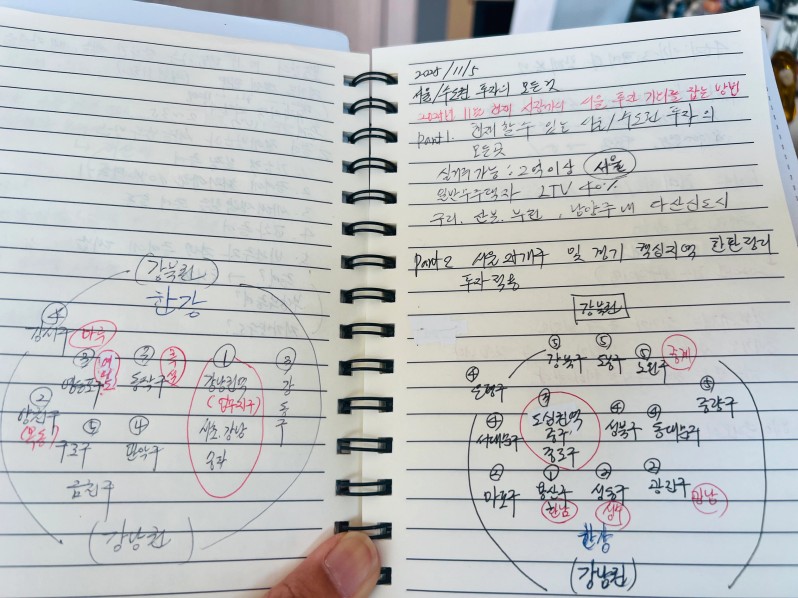 (강북권)
한강
④
강서구 마곡
③ 여의도 ② 흑석 ① ③
영등포구 동작구 강남권역 강동구
② (업무지구)
양천구 ⑤ ④ 서초.강남
(목동) 구로구 관악구 송파
금천구
(강남권)
2025/11/5
서울/수도권 투자의 모든것
2025년 11月 현재 시장가의 서울 투자 기회를 잡는 방법
part 1. 현재 할 수 있는 서울/수도권 투자의
모든 것
실거주가능: 2억이상 서울
일반무주택자 LTV 40%
구리, 남양주 내 다산신도시
part 2 서울 25개구 및 경기 핵심지역
투자적용
강북권
⑤ ⑤ ⑤ 중계
④ 강북구 도봉구 노원구
은평구 ③ ⑤
④ 도심권역 ④ ④ 중랑구
서대문구 중구 성북구 동대문구
종로구
② ① ② ②
마포구 용산구 성동구 광진구
한남 성수
한강
(강남권)